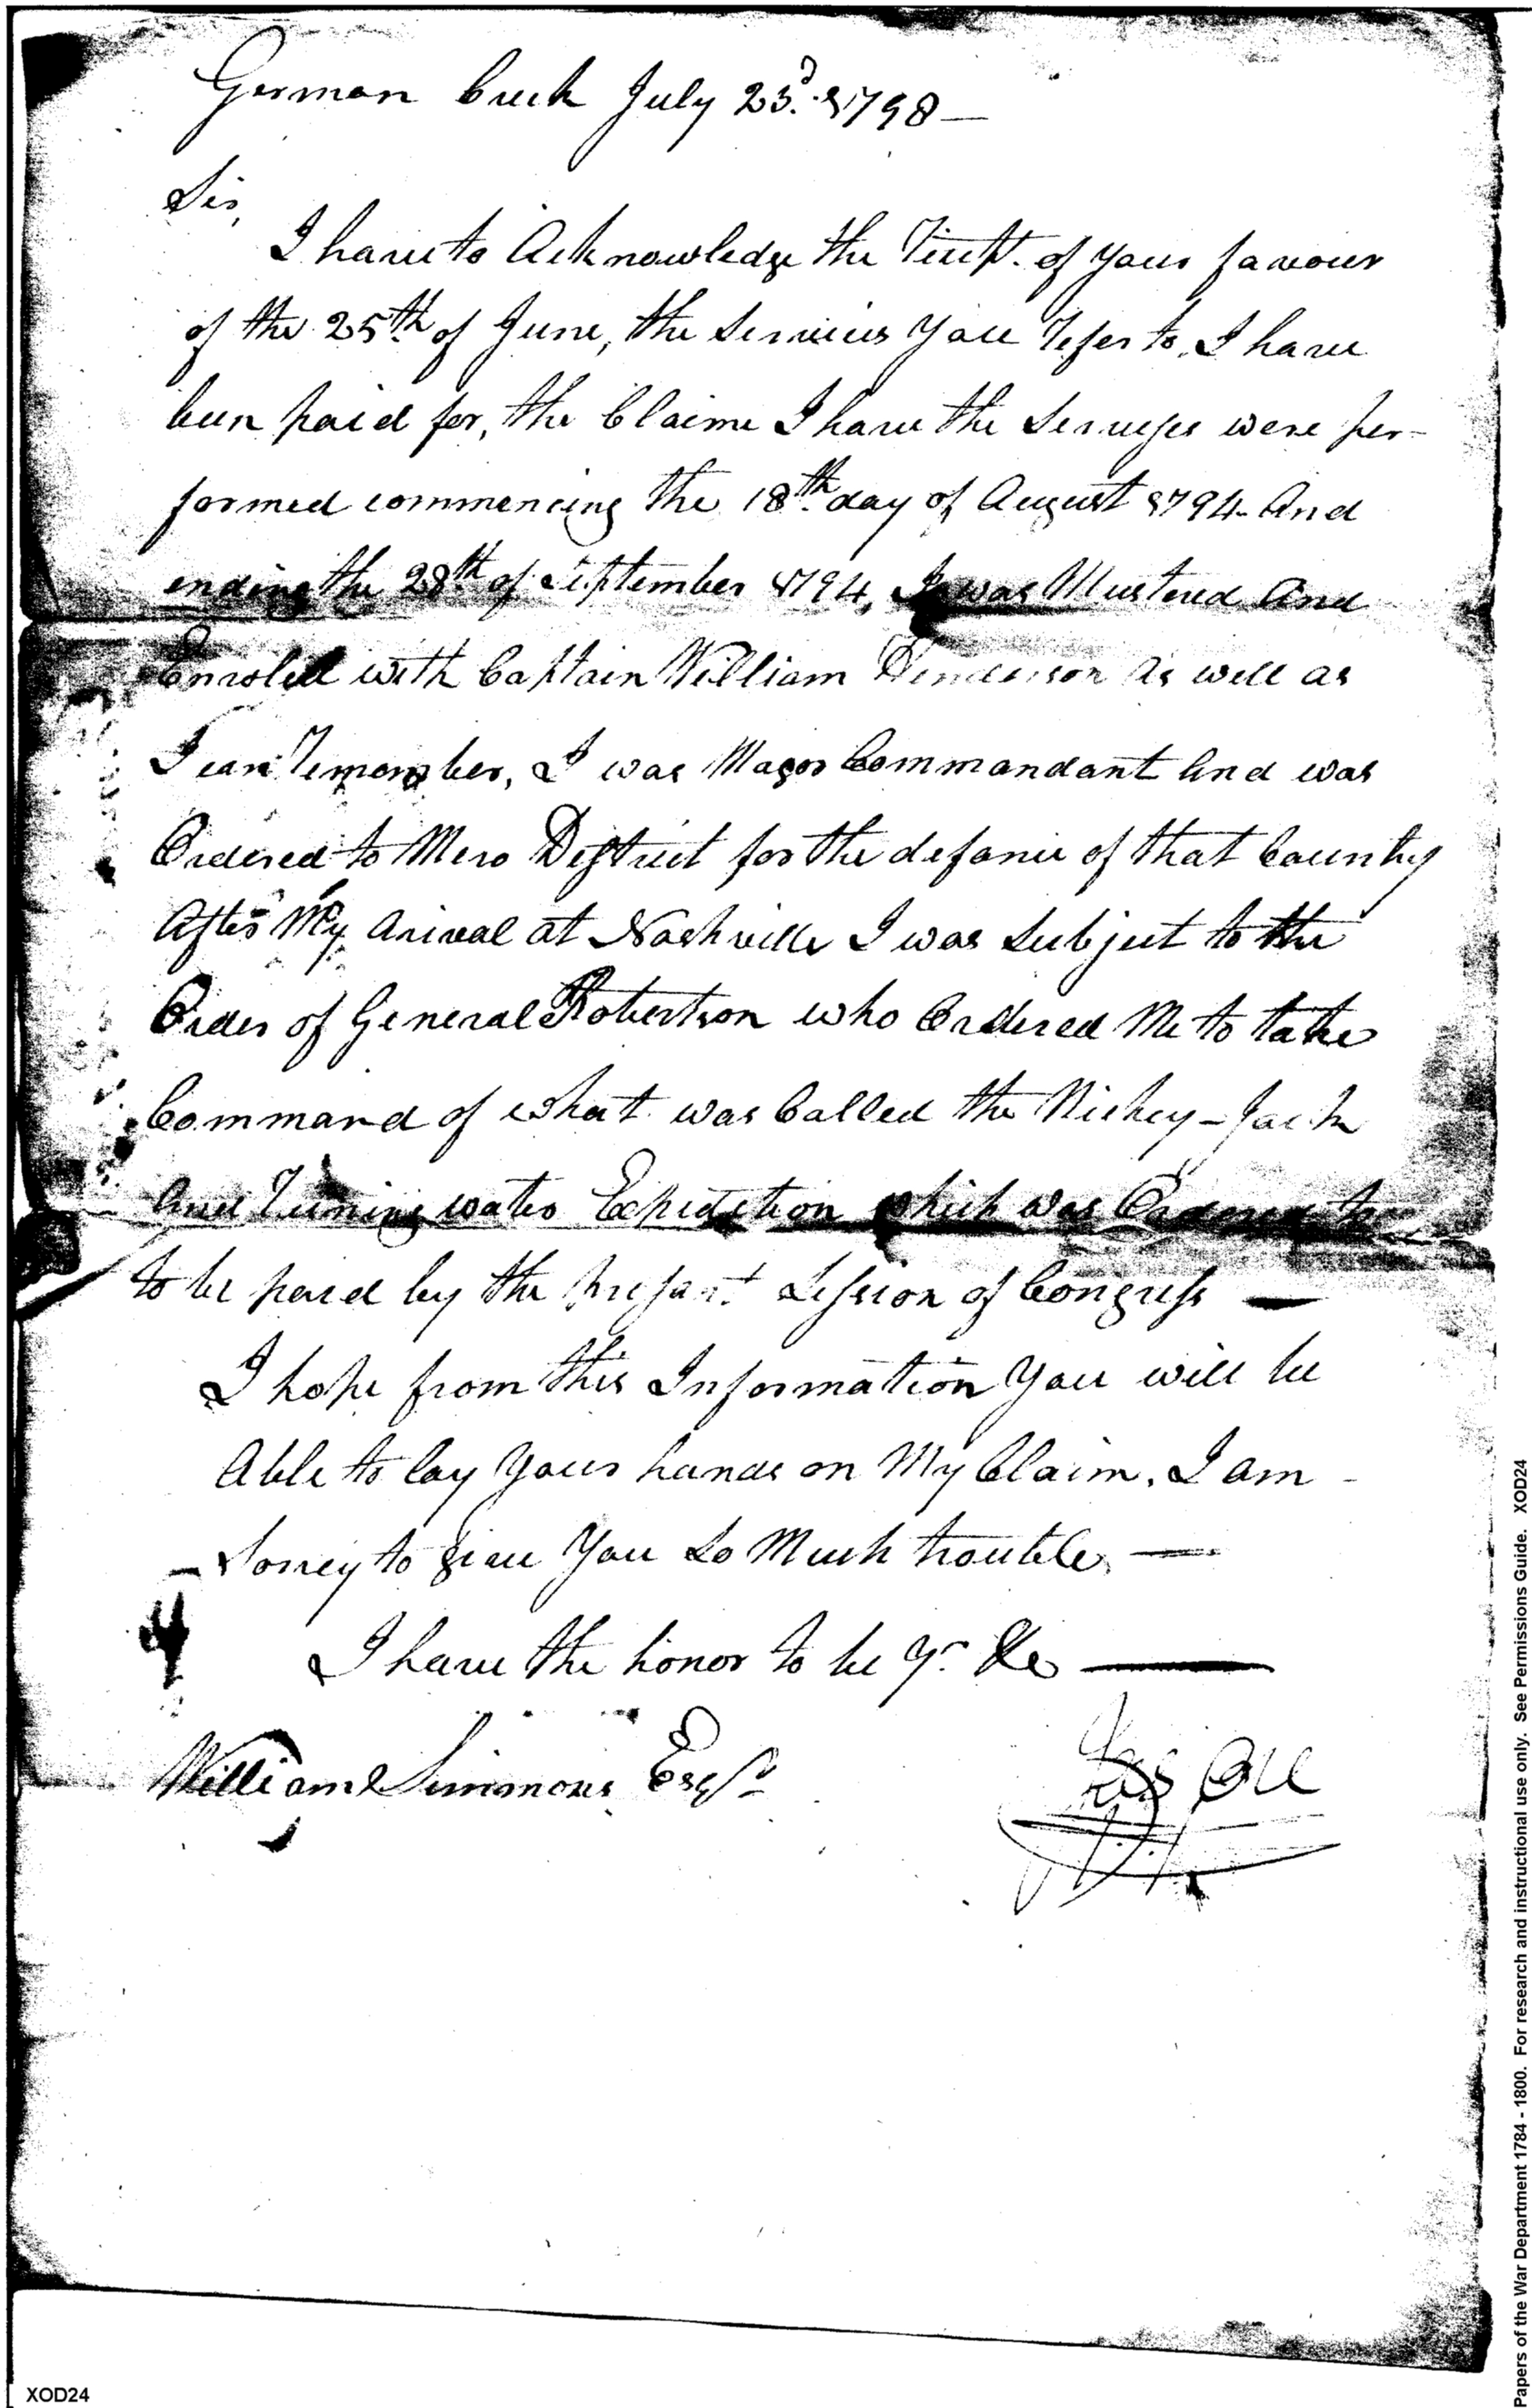 German Creek July 23.d 1798 —
Sir,
I have to Acknowledge the Receipt. of your favour
of the 25th of June, the Services You refer to, I have
been paid for, the Claime I have the Servises were per-
formed commencing the 18th day of August 1794 And
ending the 28th of September 1794, I was Mustered And
Enroled with Captain William Henderson as well as
I can remember, I was Major Commandant And was
Ordered to Mero District for the defance of that Country
After My Arival at Nashville I was Subject to the
Order of General Robertson who Ordered Me to take
Command of what was Called the Nickey-Jack
And Running water Expedition which was Ordered to
to be paid by the present Session of Congress —
I hope from this Information You will be
Able to lay Your hands on My Claim. I am
Sorrey to give You So Much trouble, —
I have the honor to be Yr. &c —
William Simmons Esqr
Jas Ore
XOD24
Papers of the War Department 1784 - 1800. For research and instructional use only. See Permissions Guide. XOD24